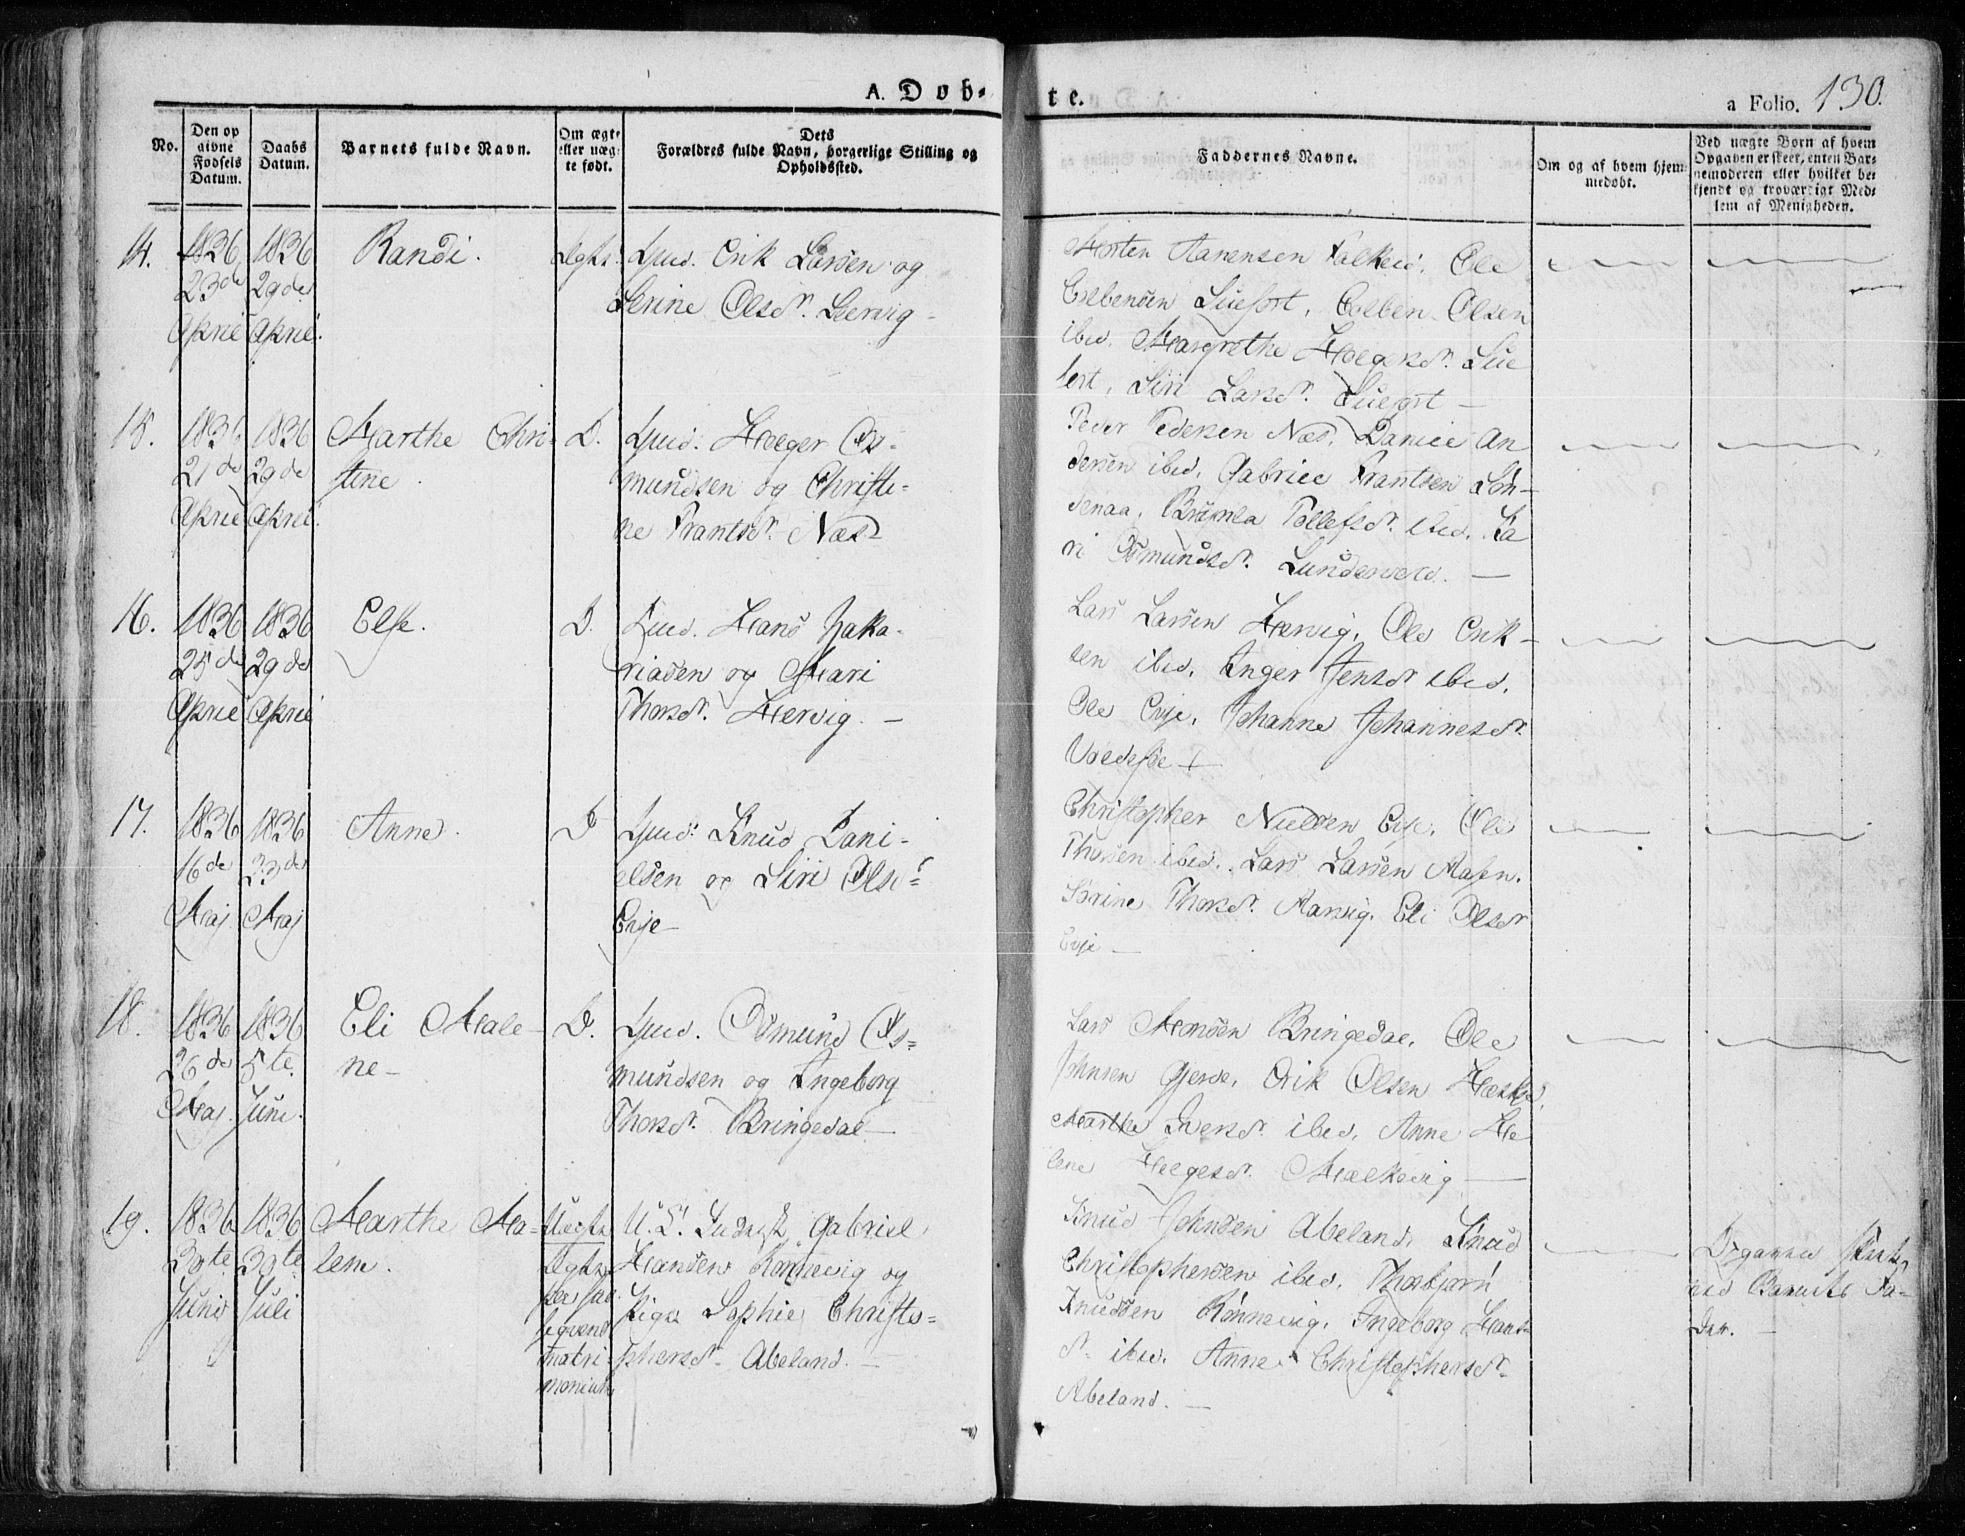 A. Døb-
te.
a Folio. 130.
No.
Den op
givne
Fødsels
Datum.
Daabs
Datum.
Barnets fulde Navn.
Om ægte
eller uæg-
te født.
Dets
Forældres fulde Navn, borgerlige Stilling og
Opholdssted.
Faddernes Navne.
Om og af hvem hjem-
medøbt.
Ved uægte Børn af hvem
Opgaven er skeet, enten Bar-
nemoderen eller hvilket be-
kjendt og troværdigt Med-
lem af Menigheden.
14.
1836
23de
April
1836
29de
April.
Randi.
Ægte.
Erik Larsen og
Serine Olsdr. Leervig -
Morten Aanensen Ole
Colbensen Colben Olsen
ibid, Margrethe
Siri Larsdr.
15.
1836
21de
April
1836
29de
April.
Marthe Chri-
stine.
D.
Holger Os-
mundsen og Christi-
ne Frantsdr. Næs-
Peder Pedersen Næs, Daniel An
dersen ibid, Gabriel Frantsen Lin-
denaa, Tollefsdr. ibid, Ka
ri Osmundsdr.
16.
1836
25de
April
1836
29de
April
Else.
D.
Hans Zaka-
riasen og Mari
Thorsdr. Hervig. -
Lars Larsen Hervig, Ole Erik-
sen ibid, Inger Jensdr ibid,
Ole Evje, Johanne Johannesdr.
17.
1836
16de
Maj
1836
23de
Maj
Anne.
D
Knud Dani-
elsen og Siri Olsdr
Evje-
Christopher Nielsen Evje, Ole
Thorsen ibid, Lars Larsen
Serine Thorsdr. Aarvig, Eli Olsdr
Evje -
18.
1836
26de
Maj.
1836
5te
Juni.
Eli Male-
ne-
D.
Osmund Os-
mundsen og Ingeborg
Thorsdr. Bringedal-
Lars Monsen Bringedal, Ole
Johnsen Gjerde, Erik Olsen
Marthe Iversdr. ibid, Anne He
lene Helgesdr. -
19.
1836
30te
Juni
1836
30te
Juli
Marthe Ma-
lene.
Uægte
Ægte
per sub-
seqvens
matri-
monium
Gabriel
Hansen Rønnevig og
Pige Sophie Christo-
phersdr. Abeland. -
Knud Johnsen Abeland, Knud
Christophersen ibid, Thorbjørn
Knudsen Rønnevig, Ingeborg Hans
dr. ibid, Anne Christophersdr.
Abeland. -
Opgaven skeet
ved Barnets Fa-
der. -